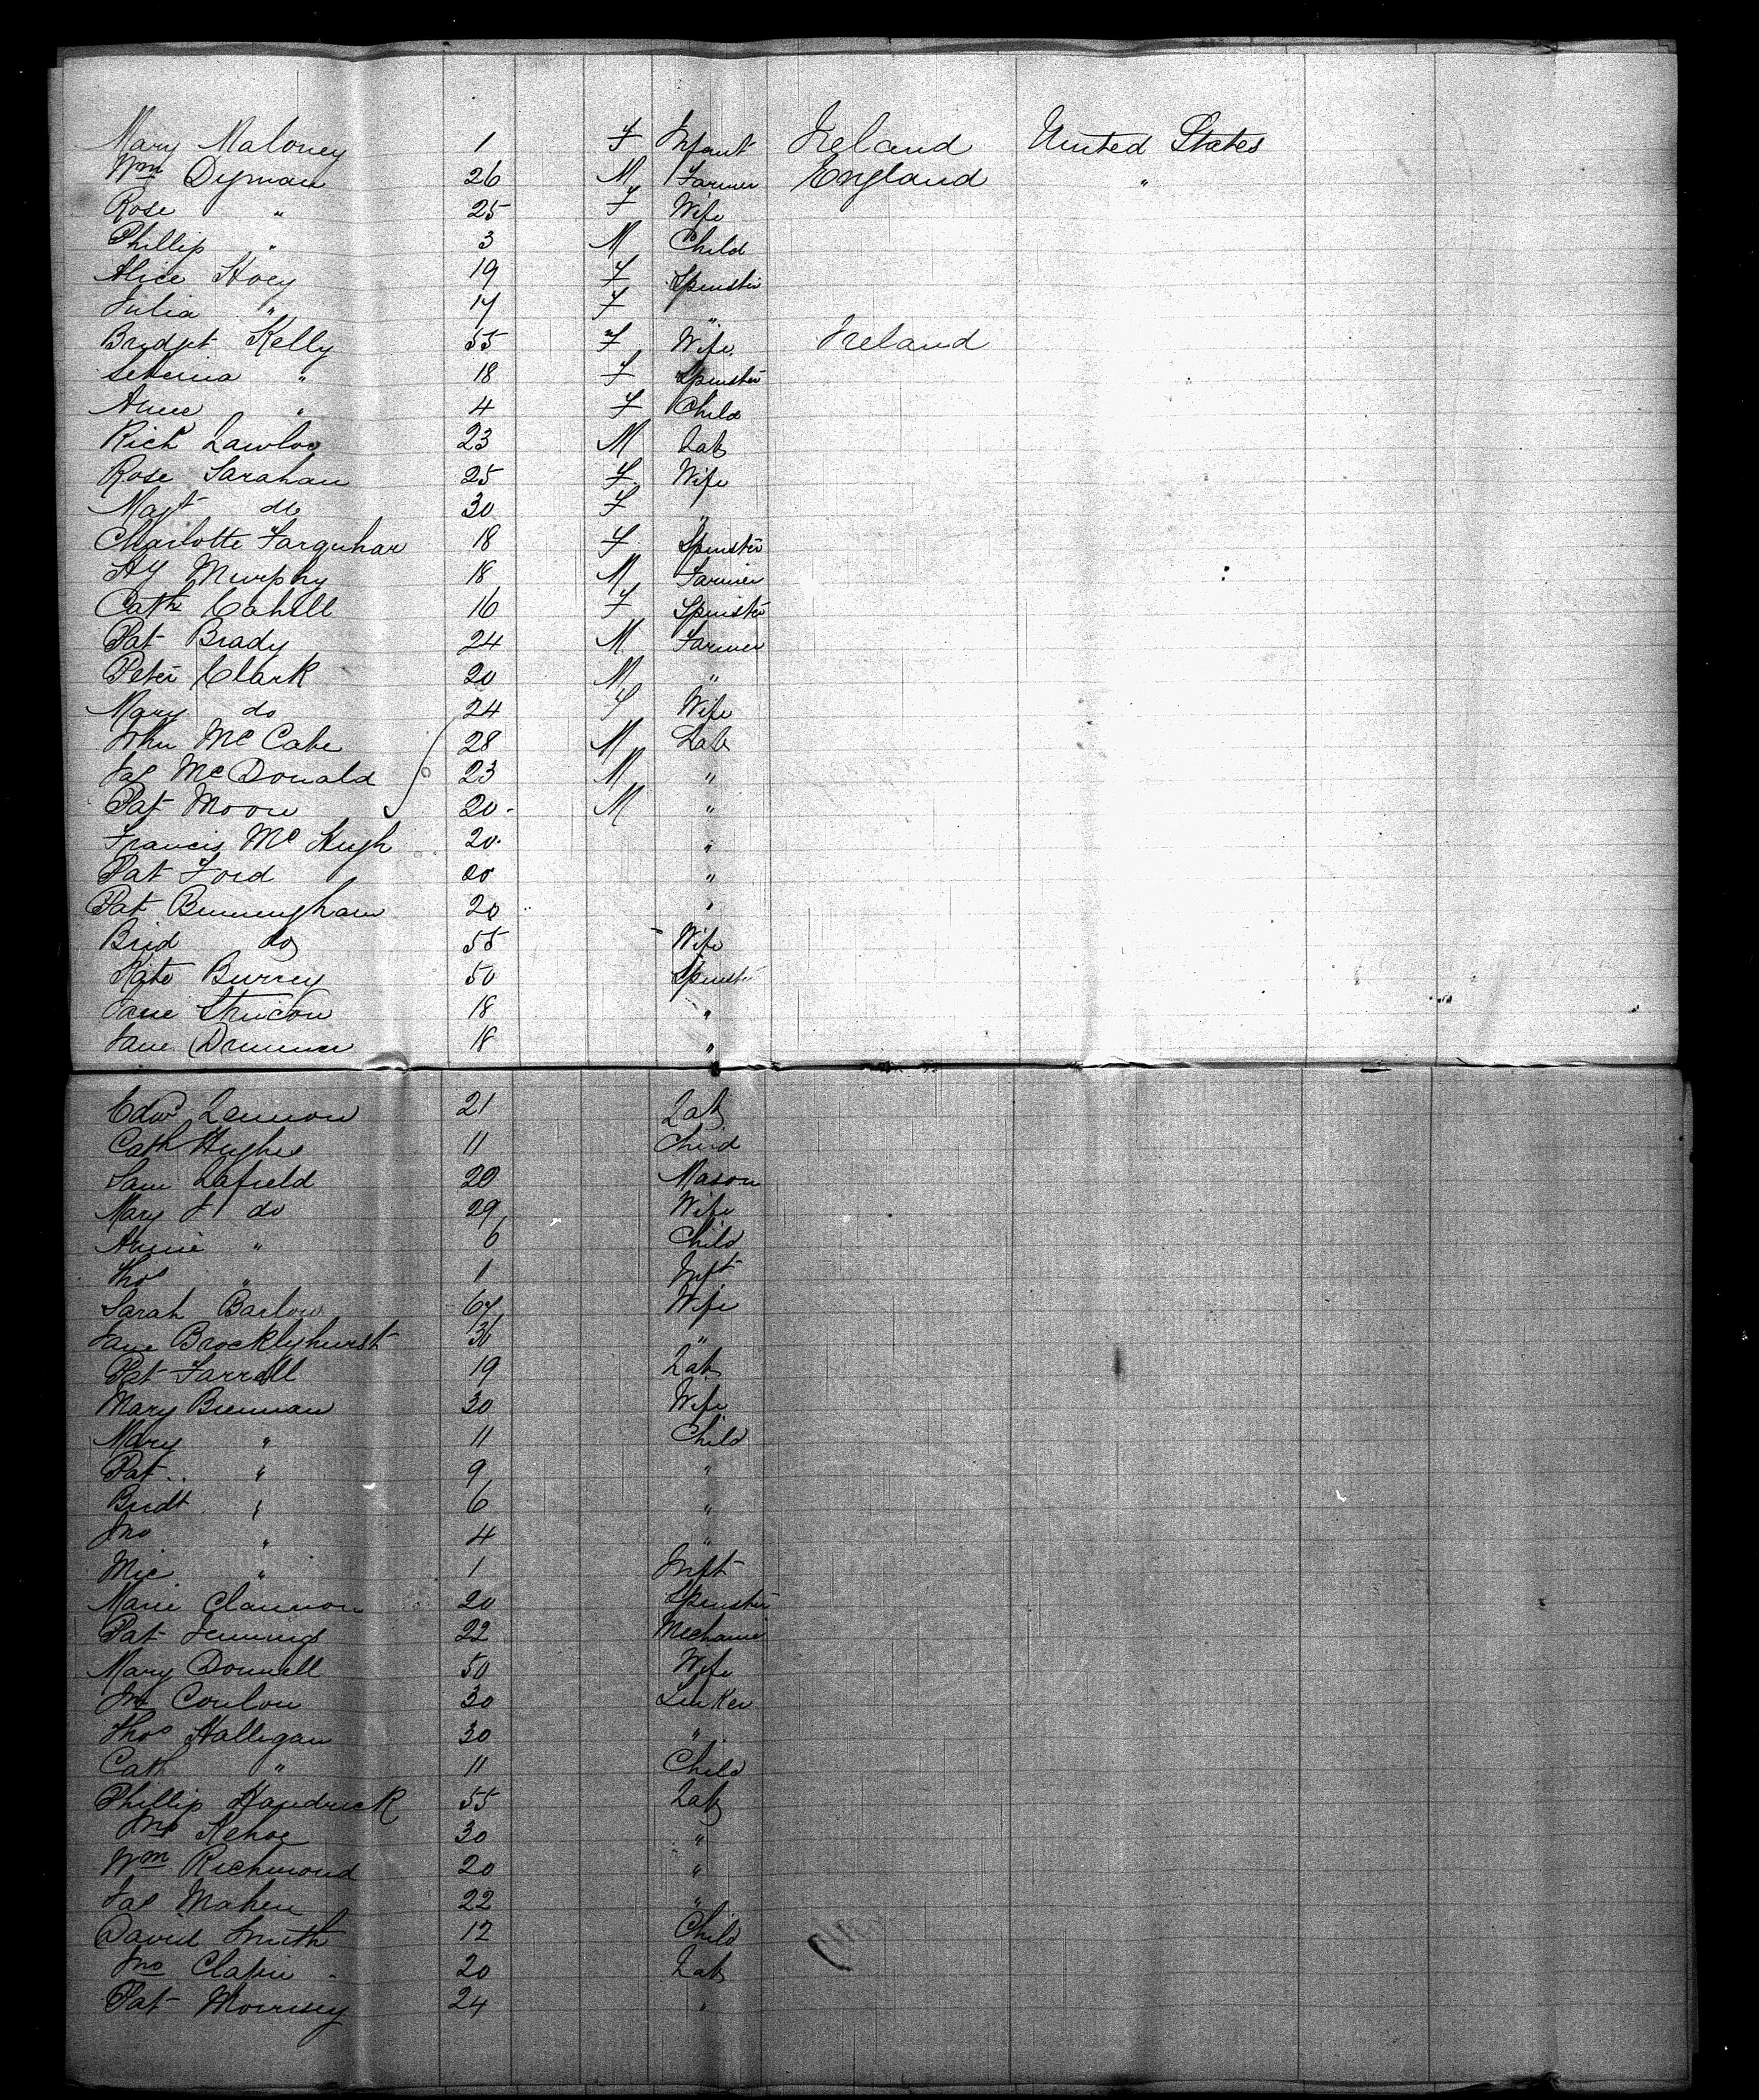 Mary Maloney 1 F Infant Ireland United States
Wm Dyman 26 M Farmer England "
Rose " 25 F Wife
Phillip " 3 M Child
Alice Hoey 19 F Spinster
Julia " 17 F "
Bridget Kelly 55 F Wife Ireland
" 18 F Spinster
Anne " 4 F Child
Richd Lawlor 23 M Lab
Rose Sarahan 25 F Wife
Magt do 30 F "
Charlotte Farquhar 18 F Spinster
Hy Murphy 18 M Farmer
Cath Cahill 16 F Spinster
Pat Brady 24 M Farmer
Peter Clark 20 M "
Mary do 24 F Wife
John McCabe 28 M Lab
Jas McDonald 23 M "
Pat Moore 20 M "
Francis McHugh 20 "
Pat Ford 20 "
Pat Bermingham 20 "
Brid do 55 Wife
Kate Burrey 50 Spinster
Jane 18 "
Jane 18 "
Edwd Lennon 21 Lab
Cath Hughes 11 Child
Sam Lafield 20 Mason
Mary J do 29 Wife
Annie " 6 Child
Thos " 1 Inft
Sarah Barlow 64 Wife
Jane Brocklyhurst 36 "
Pat Farrell 19 Lab
Mary Brennan 30 Wife
Mary " 11 Child
Pat " 9 "
Bridt " 6 "
Jno " 4 "
Mic " 1 Inft
Marie Clannon 20 Spinster
Pat Jennings 22 Mechanic
Mary Donnell 50 Wife
Jno Conlon 30
Thos Halligan 30 "
Cath " 11 Child
Phillip Handrick 55 Lab
Jno Kehoe 30 "
Wm Richmond 20 "
Jas Maher 22 "
David Smith 12 Child
Jno Clafin 20 Lab
Pat Morrisey 24 "